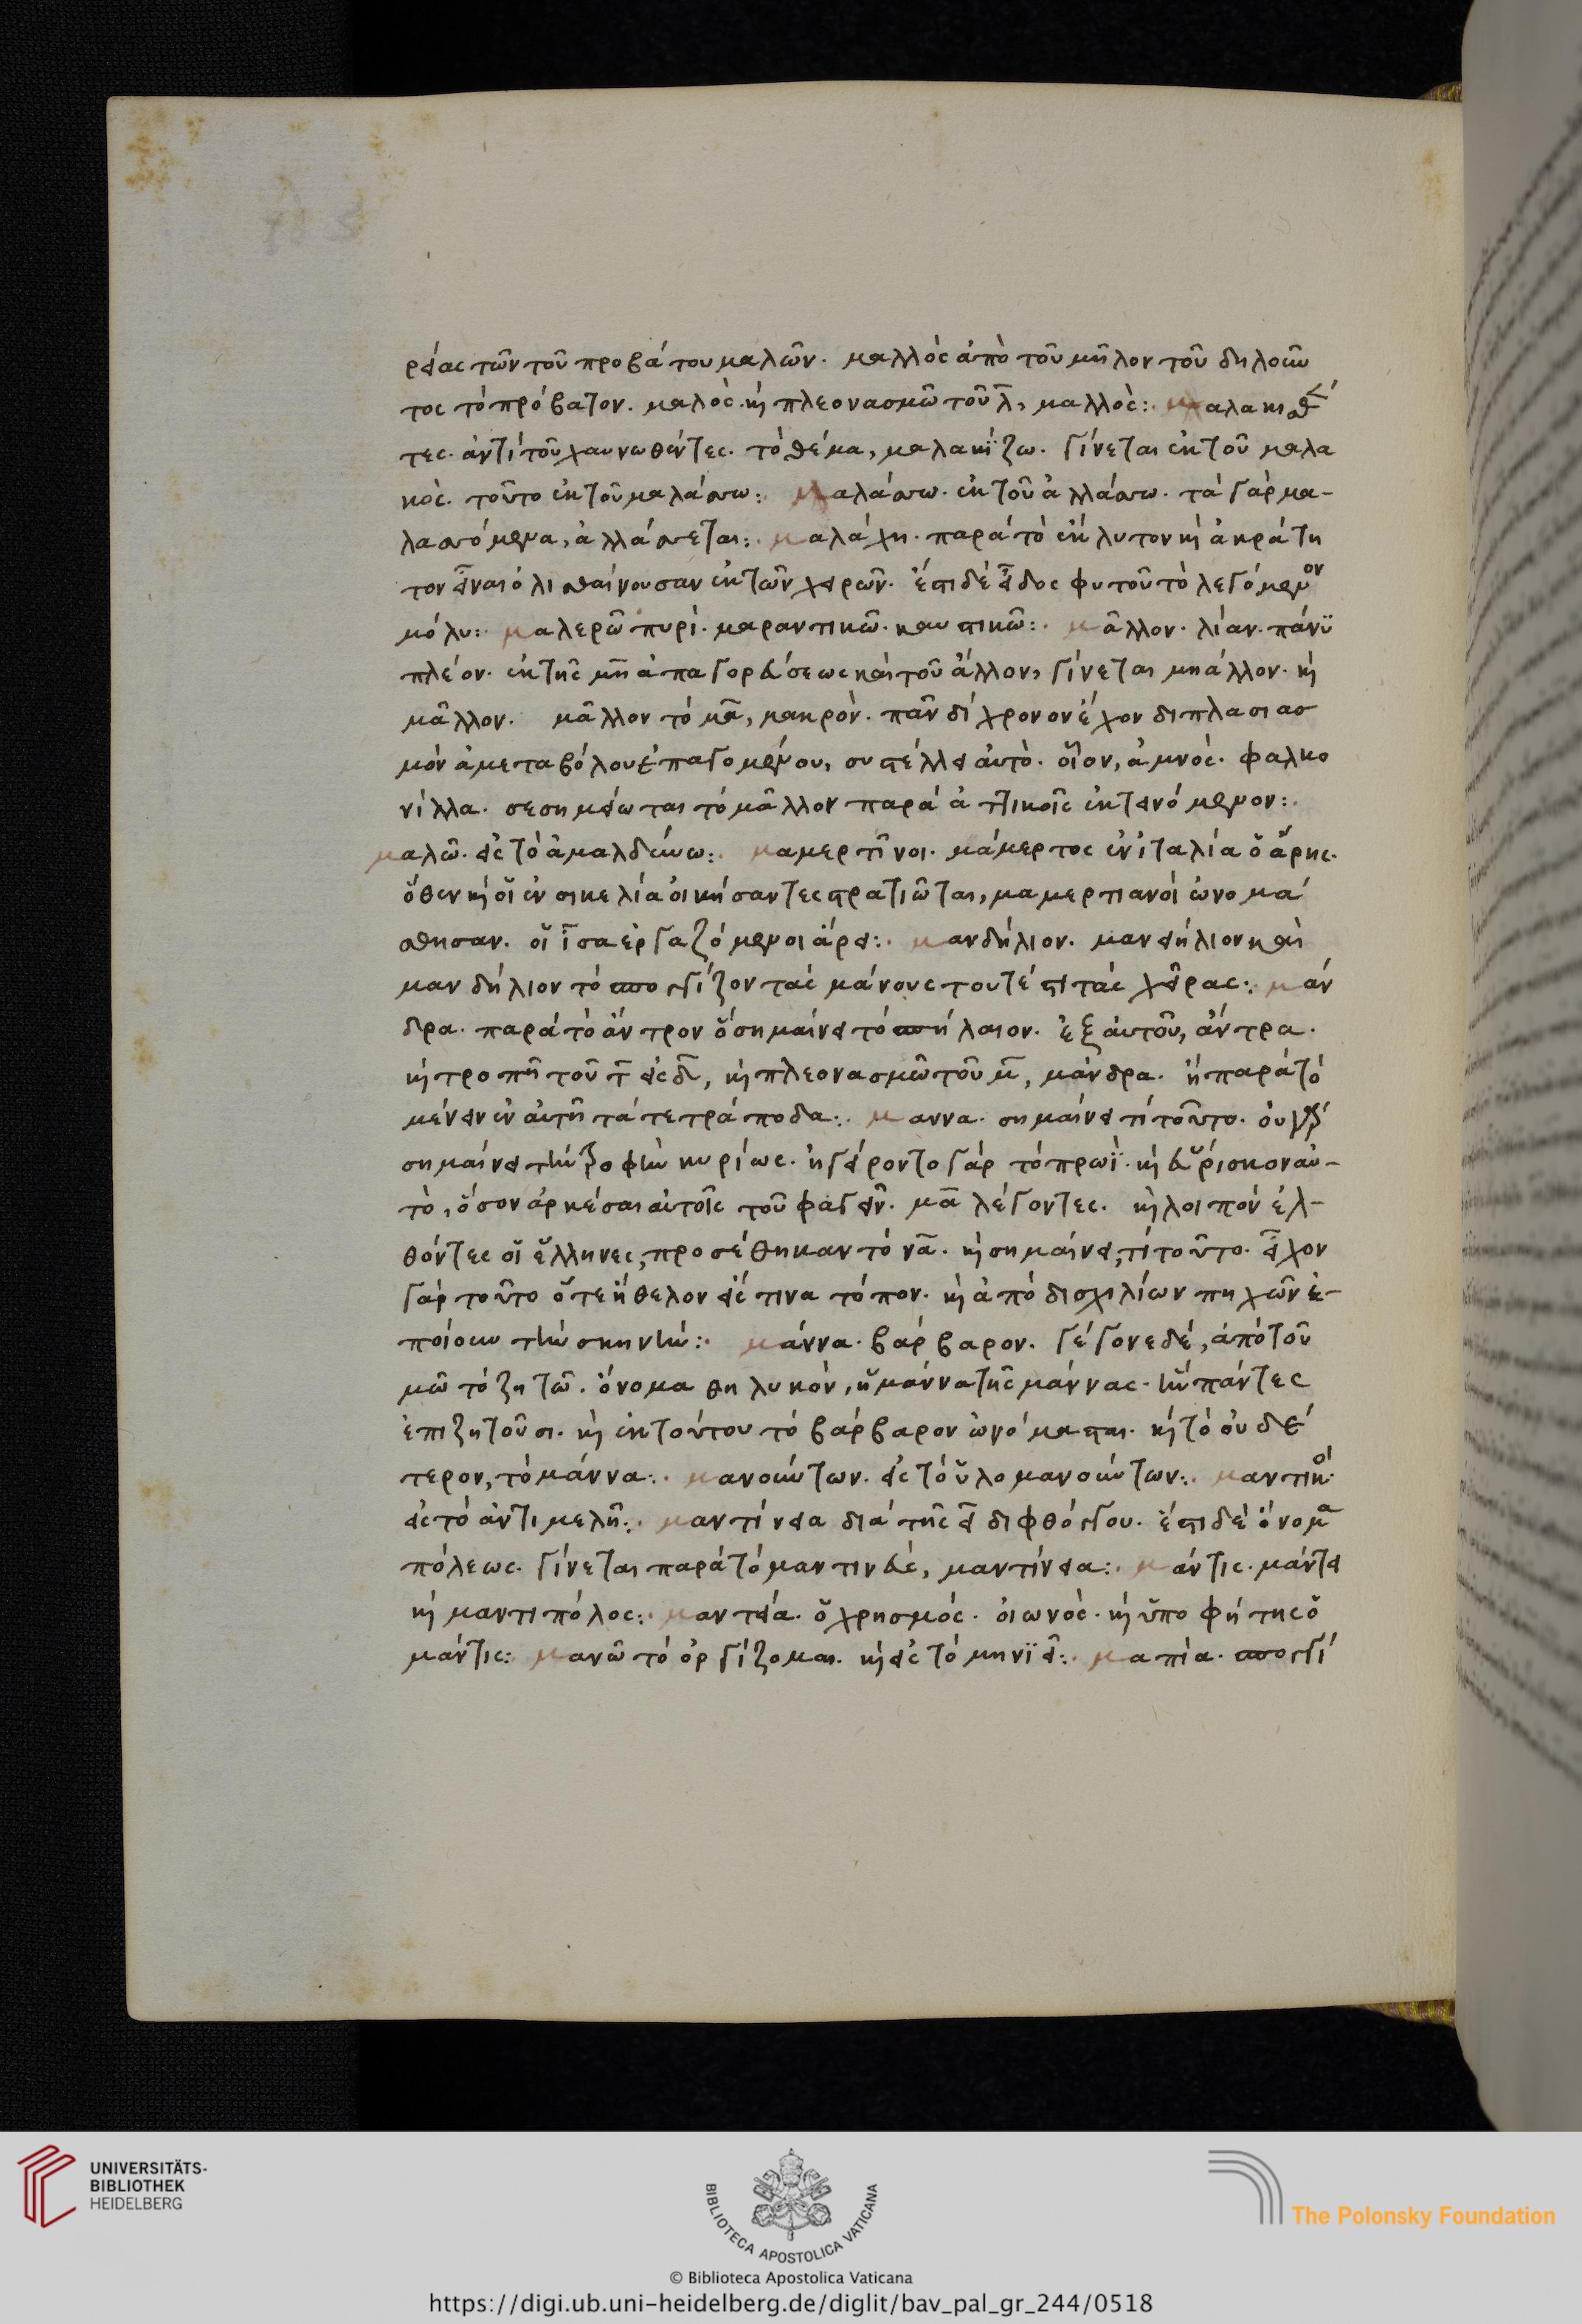 ρείας τῶν τοῦ προβάτου μαλῶν. μαλλὸς ἀπὸ τοῦ μῆλον τοῦ δηλοῦν
τος τὸ πρόβατον. μαλὸς. καὶ πλεονασμῶ τοῦ λ̄, μαλλὸς:. μαλακισθέν
τες. ἀντὶ τοῦ χαυνωθέντες. τὸ θέμα, μαλακΐζω. γίνεται ἐκ τοῦ μαλα
κὸς. τοῦτο ἐκ τοῦ μαλάσσω:. μαλάσσω. ἐκ τοῦ ἀλλάσσω. τὰ γὰρ μα-
λασσόμενα, ἀλλάσσεται:. μαλάχη. παρὰ τὸ ἔκλυτον καὶ ἀκράτη
τον εἶναι ὀλισθαίνουσαν ἐκ τῶν χειρῶν. ἔστι δὲ εἶδος φυτοῦ τὸ λεγόμενον
μόλυ:. μαλερῶ πυρὶ. μαραντικῶ. καυστικῶ:. μᾶλλον. λίαν. πάνϋ
πλέον. ἐκ τῆς μὴ ἀπαγορεύσεως καὶ τοῦ ἄλλον, γίνεται μηάλλον. καὶ
μᾶλλον. μᾶλλον τὸ μα, μακρὸν. πᾶν δίχρονον ἔχον διπλασιασ
μὸν ἀμεταβόλου ἐπαγομένου, συστέλλει αὐτὸ. οἷον, ἀμνὸς. φαλκο
νίλλα. σεσημείωται τὸ μᾶλλον παρὰ ἀττικοῖς ἐκτεινόμενον:.
μαλῶ. εἰς τὸ ἀμαλδύνω:. μαμερτῖνοι. μάμερτος ἐν ἰταλία ὁ ἄρης.
ὅθεν καὶ οἱ ἐν σικελία οἰκήσαντες στρατιῶται, μαμερτιανοὶ ὠνομά
σθησαν. οἱ ἶσα ἐργαζόμενοι ἄρει:. μανδήλιον. μανείλιον καὶ
μανδήλιον τὸ σπογγίζον τὰς μάνους τουτέστι τὰς χεῖρας:. μάν
δρα. παρὰ τὸ ἄντρον ὃ σημαίνει τὸ σπήλαιον. ἐξ αὐτοῦ, ἄντρα.
καὶ τροπῆ τοῦ τ̄ εἰς δ̄, καὶ πλεονασμῶ τοῦ μ̄, μάνδρα. ἢ παρὰ τὸ
μένειν ἐν αὐτῆ τὰ τετράποδα:. μαννα. σημαίνει τί τοῦτο. οὐ γὰρ
σημαίνει τὴν τροφὴν κυρίως. ἠγείροντο γὰρ τὸ πρωῒ. καὶ εὕρισκον αὐ-
τὸ, ὅσον ἀρκέσαι αὐτοῖς τοῦ φαγεῖν. μα λέγοντες. καὶ λοιπὸν ἐλ-
θόντες οἱ ἕλληνες, προσέθηκαν τὸ να. καὶ σημαίνει, τί τοῦτο. εἶχον
γὰρ τοῦτο ὅτε ἤθελον εἴς τινα τόπον. καὶ ἀπὸ δισχιλίων πηχῶν ἐ-
ποίουν τὴν σκηνὴν:. μάννα. βάρβαρον. γέγονε δὲ, ἀπὸ τοῦ
μῶ τὸ ζητῶ. ὄνομα θηλυκὸν, ἡ μάννα τῆς μάννας. ἣν πάντες
ἐπιζητοῦσι. καὶ ἐκ τούτου τὸ βάρβαρον ὠνόμασται. καὶ τὸ οὐδέ
τερον, τὸ μάννα:. μανούντων. εἰς τὸ ὑλομανούντων:. μαντικό.
εἰς τὸ ἀντιμελῆ:. μαντίνεια διὰ τῆς ει διφθόγγου. ἔστι δὲ ὄνομα
πόλεως. γίνεται παρὰ τὸ μαντινεὺς, μαντίνεια:. μάντις. μάντει
καὶ μαντιπόλος:. μαντεία. ὁ χρησμός. οἰωνὸς. καὶ ὑποφήτης ὁ
μάντις:. μανῶ τὸ ὀργίζομαι. καὶ εἰς τὸ μηνϊεῖ:. μαπία. σπογγί
UNIVERSITÄTS-
BIBLIOTHEK
HEIDELBERG
BIBLIOTECA APOSTOLICA VATICANA
The Polonsky Foundation
© Biblioteca Apostolica Vaticana
https://digi.ub.uni-heidelberg.de/diglit/bav_pal_gr_244/0518